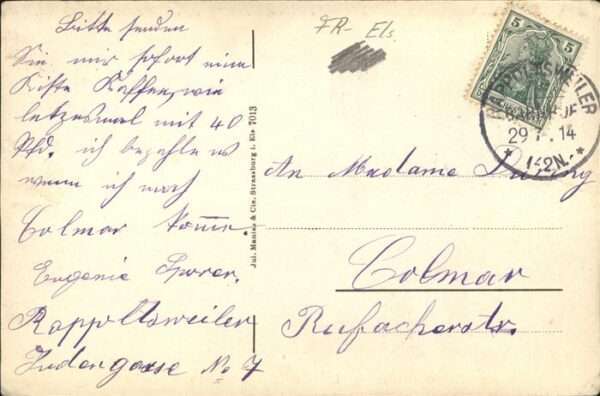 Bitte senden
Sie mir sofort eine
Kiste Kaffee, wie
letztesmal mit 40
Pfd. ich bezahle es
wenn ich nach
Colmar komme.
Eugenie Sporer.
Rappoltsweiler
Judengasse No 7
Jul. Manias & Cie. Strassburg i. Els 7013
FR- Els.
5 5
RAPPOLTSWEILER
BAHNHOF
29 14
1-2N.
An Madame
Colmar
Rufacherstr.